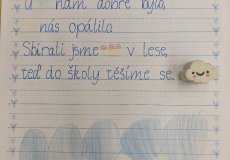 U nám dobře bylo,
nás opálilo.
Sbírali jsme v lese,
teď do školy těšíme se.